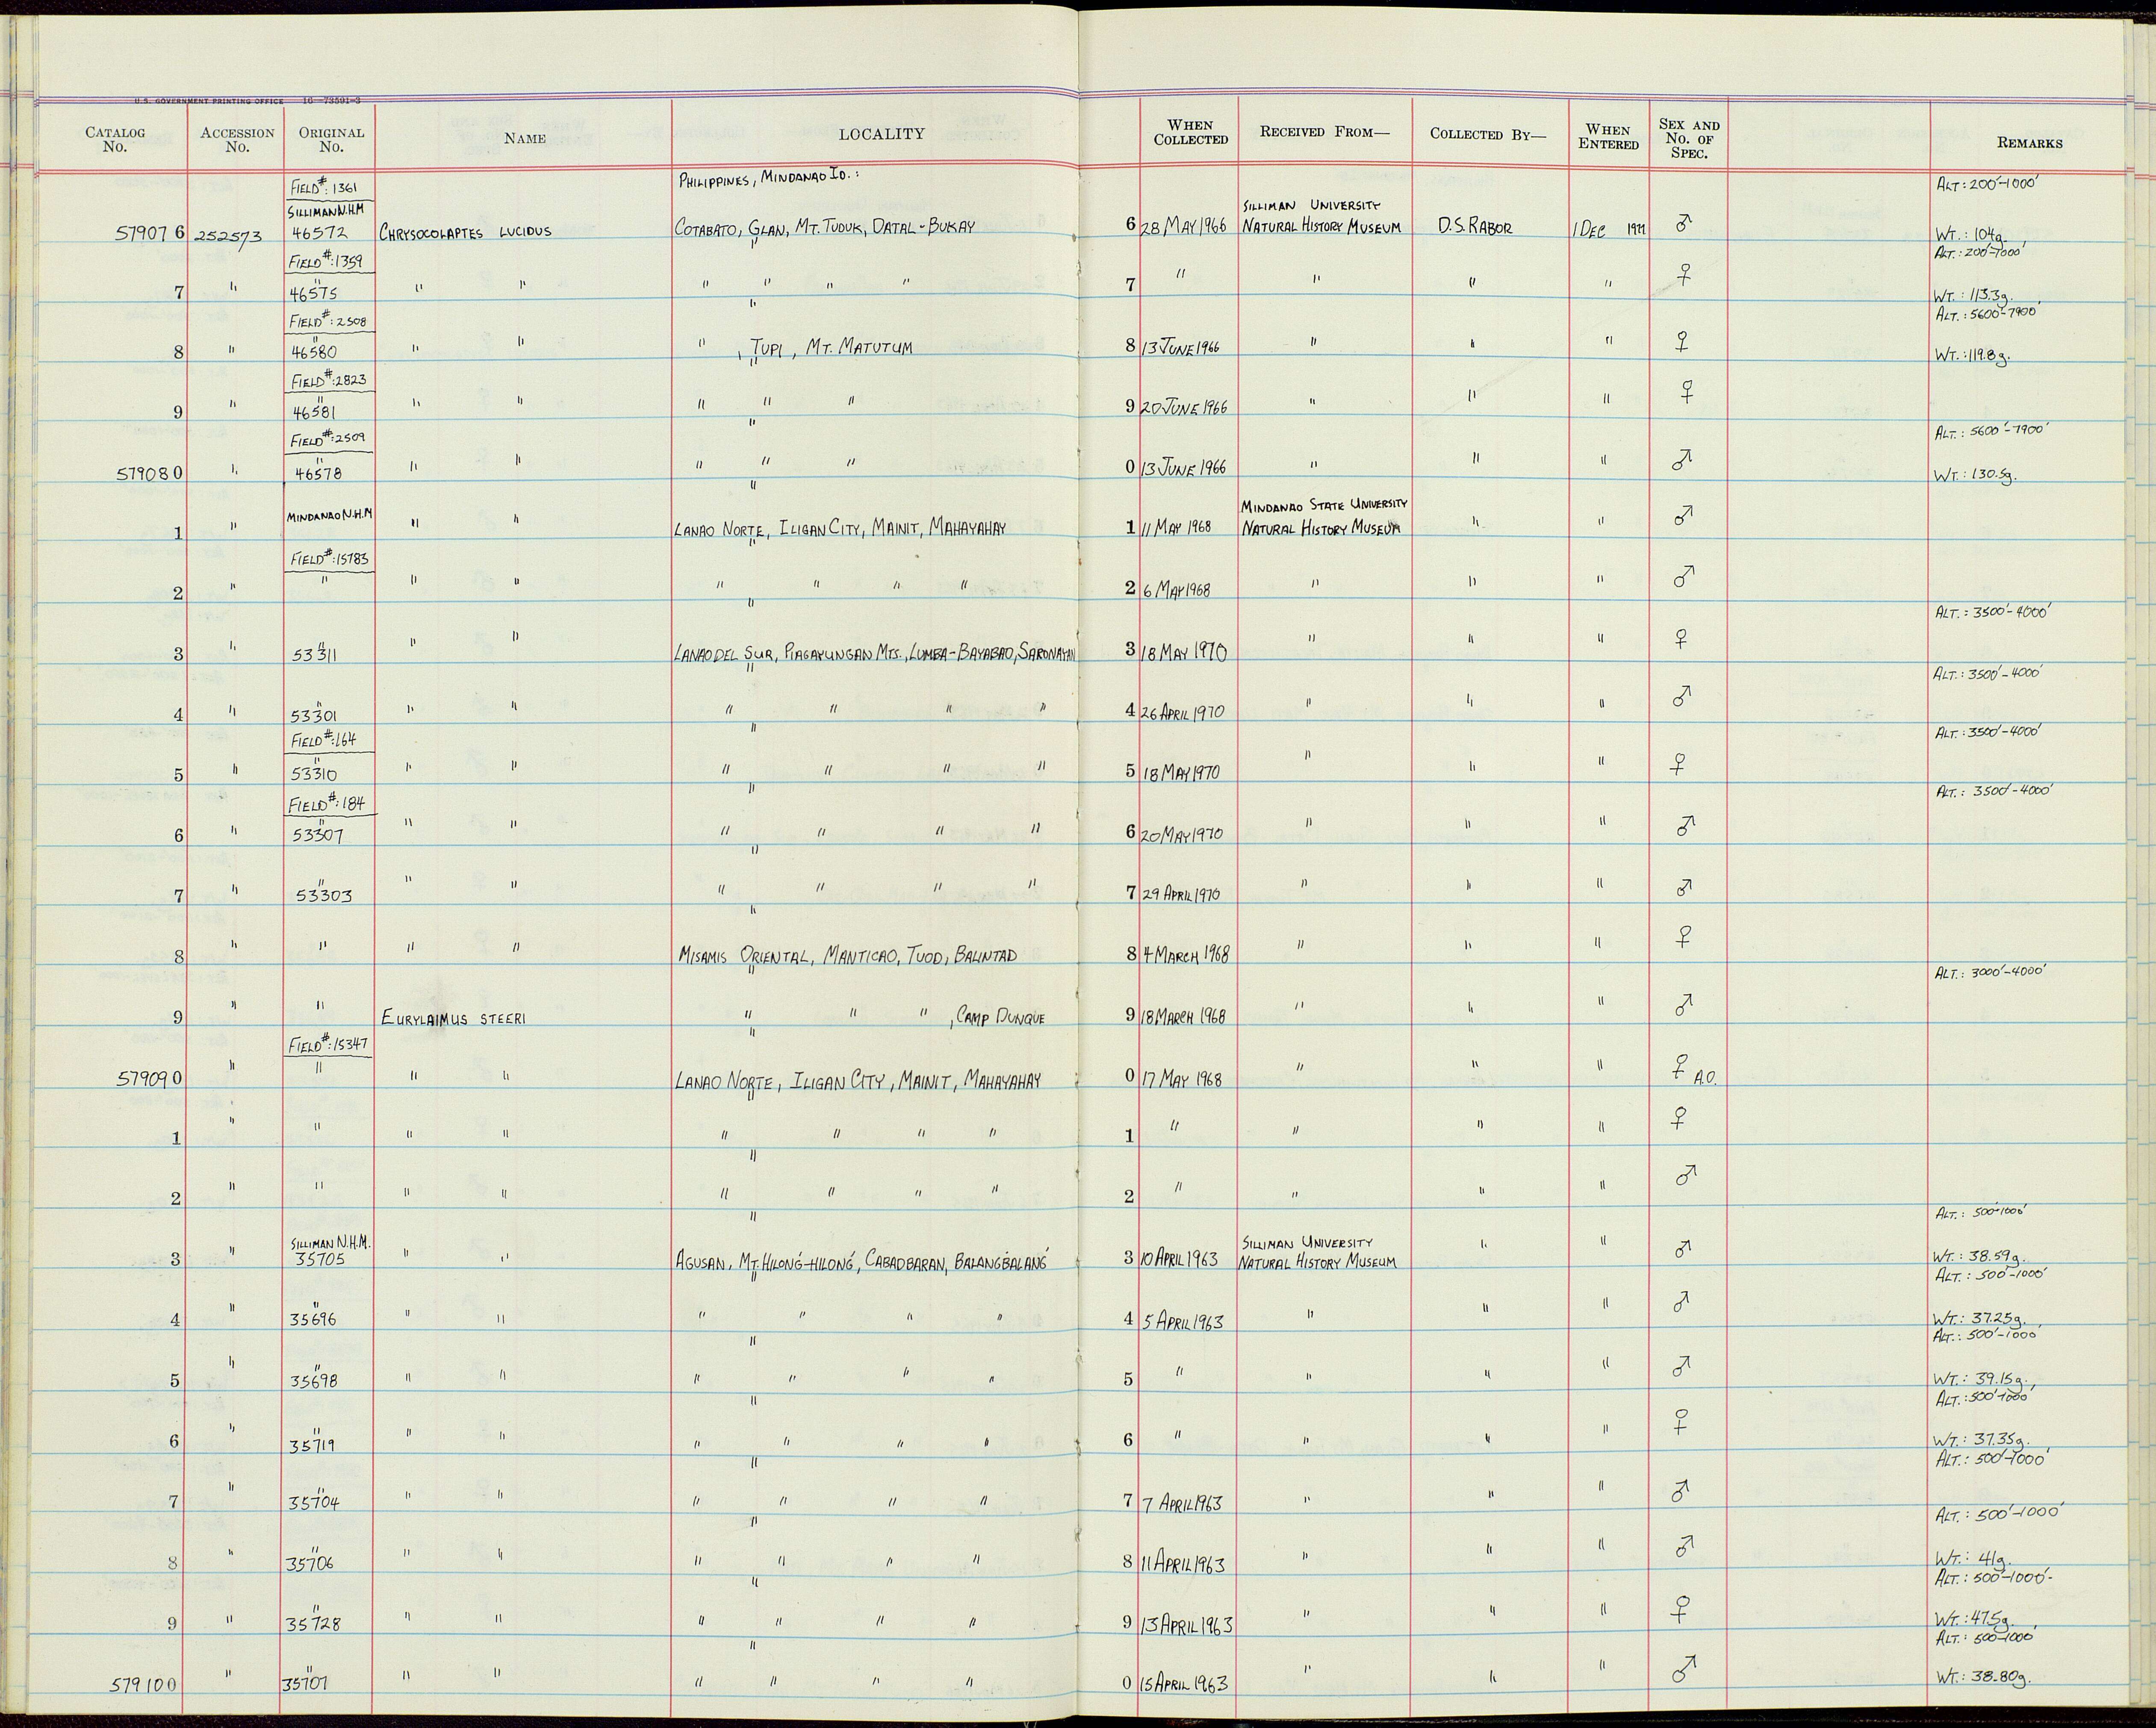 U.S. GOVERNMENT PRINTING OFFICE 16—73591-3
CATALOG No. ACCESSION No. ORIGINAL No. NAME LOCALITY WHEN COLLECTED RECEIVED FROM— COLLECTED BY— WHEN ENTERED SEX AND No. OF SPEC. REMARKS
FIELD#: 1361 PHILIPPINES, MINDANAO ID.: ALT: 200'-1000'
SILLIMAN N.H.M SILLIMAN UNIVERSITY
579076 252573 46572 CHRYSOCOLAPTES LUCIDUS COTABATO, GLAN, MT. TUDUK, DATAL-BUKAY 6 28 MAY 1966 NATURAL HISTORY MUSEUM D.S. RABOR 1 DEC ♂ WT.: 104g.
FIELD#: 1359 " ALT.: 200'-1000'
7 " " 46575 " " " " " " 7 " " " " ♀ WT.: 113.3g.
FIELD#: 2508 " ALT.: 5600'-7900'
8 " " 46580 " " " , TUPI, MT. MATUTUM 8 13 JUNE 1966 " " " ♀ WT.: 119.8g.
FIELD#: 2823 "
9 " " 46581 " " " " " 9 20 JUNE 1966 " " " ♀
FIELD#: 2509 " ALT.: 5600'-7900'
579080 " " 46578 " " " " " 0 13 JUNE 1966 " " " ♂ WT.: 130.5g.
" MINDANAO STATE UNIVERSITY
1 " MINDANAO N.H.M " " LANAO NORTE, ILIGAN CITY, MAINIT, MAHAYAHAY 1 11 MAY 1968 NATURAL HISTORY MUSEUM " " ♂
FIELD#: 15783 "
2 " " " " " " " " 2 6 MAY 1968 " " " ♂
" ALT.: 3500'-4000'
3 " " 53311 " " LANAO DEL SUR, PIAGAYUNGAN MTS., LUMBA-BAYABAO, SARONAYAN 3 18 MAY 1970 " " " ♀
" ALT.: 3500'-4000'
4 " " 53301 " " " " " " 4 26 APRIL 1970 " " " ♂
FIELD#: 164 " ALT.: 3500'-4000'
5 " " 53310 " " " " " " 5 18 MAY 1970 " " " ♀
FIELD#: 184 " ALT.: 3500'-4000'
6 " " 53307 " " " " " " 6 20 MAY 1970 " " " ♂
"
7 " " 53303 " " " " " " 7 29 APRIL 1970 " " " ♂
"
8 " " " " MISAMIS ORIENTAL, MANTICAO, TUOD, BALINTAD 8 4 MARCH 1968 " " " ♀
" ALT.: 3000'-4000'
9 " " EURYLAIMUS STEERI " " " , CAMP DUNQUE 9 18 MARCH 1968 " " " ♂
FIELD#: 15347 "
579090 " " " " LANAO NORTE, ILIGAN CITY, MAINIT, MAHAYAHAY 0 17 MAY 1968 " " " ♀ A.O.
"
1 " " " " " " " " 1 " " " " ♀
"
2 " " " " " " " " 2 " " " " ♂
" ALT.: 500'-1000'
SILLIMAN N.H.M. SILLIMAN UNIVERSITY
3 " 35705 " " AGUSAN, MT. HILONG-HILONG, CABADBARAN, BALANGBALANG 3 10 APRIL 1963 NATURAL HISTORY MUSEUM " " ♂ WT.: 38.59g.
" ALT.: 500'-1000'
4 " " 35696 " " " " " " 4 5 APRIL 1963 " " " ♂ WT.: 37.25g.
" ALT.: 500'-1000'
5 " " 35698 " " " " " " 5 " " " " ♂ WT.: 39.15g.
" ALT.: 500'-1000'
6 " " 35719 " " " " " " 6 " " " " ♀ WT.: 37.35g.
" ALT.: 500'-1000'
7 " " 35704 " " " " " " 7 7 APRIL 1963 " " " ♂
" ALT.: 500'-1000'
8 " " 35706 " " " " " " 8 11 APRIL 1963 " " " ♂ WT.: 41g.
" ALT.: 500'-1000'
9 " " 35728 " " " " " " 9 13 APRIL 1963 " " " ♀ WT.: 47.5g.
" ALT.: 500'-1000'
579100 " " 35707 " " " " " " 0 15 APRIL 1963 " " " ♂ WT.: 38.80g.